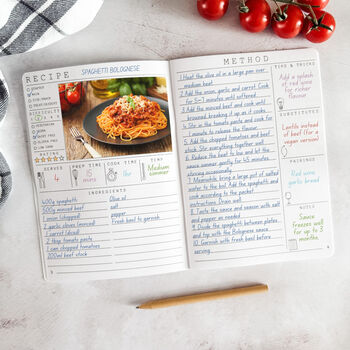 RECIPE
SPAGHETTI BOLOGNESE
DIFFICULTY
RATING
SERVES
4
PREP TIME
15 mins
COOK TIME
1hr
TEMP
Medium
simmer
INGREDIENTS
400g spaghetti
500g minced beef
1 onion (chopped)
2 garlic cloves (minced)
1 carrot (diced)
2 tbsp tomato paste
1 can chopped tomatoes
200ml beef stock
Olive oil
salt
pepper
Fresh basil to garnish
METHOD
1 Heat the olive oil in a large pan over
medium heat
2 Add the onion, garlic and carrot. Cook
for 5-7 minutes until softened
3 Add the minced beef and cook until
browned breaking it up as it cooks.
4 Stir in the tomato paste and cook for
1 minute to release the flavour
5 Add the chopped tomatoes and beef
stock. Stir everything together well
6 Reduce the heat to low and let the
sauce simmer gently for 45 minutes
stirring occasionally
7 Meanwhile bring a large pot of salted
water to the boil. Add the spaghetti and
cook according to the packet
instructions. Drain well
8 Taste the sauce and season with salt
and pepper as needed
9 Divide the spaghetti between plates
and top with the Bolognese sauce
10 Garnish with fresh basil before
serving
TIPS & TRICKS
Add a splash
of red wine
for richer
flavour
SUBSTITUTES
Lentils instead
of beef (for a
vegan version)
PAIRINGS
Red wine
garlic bread
NOTES
Sauce
freezes well
for up to 3
months